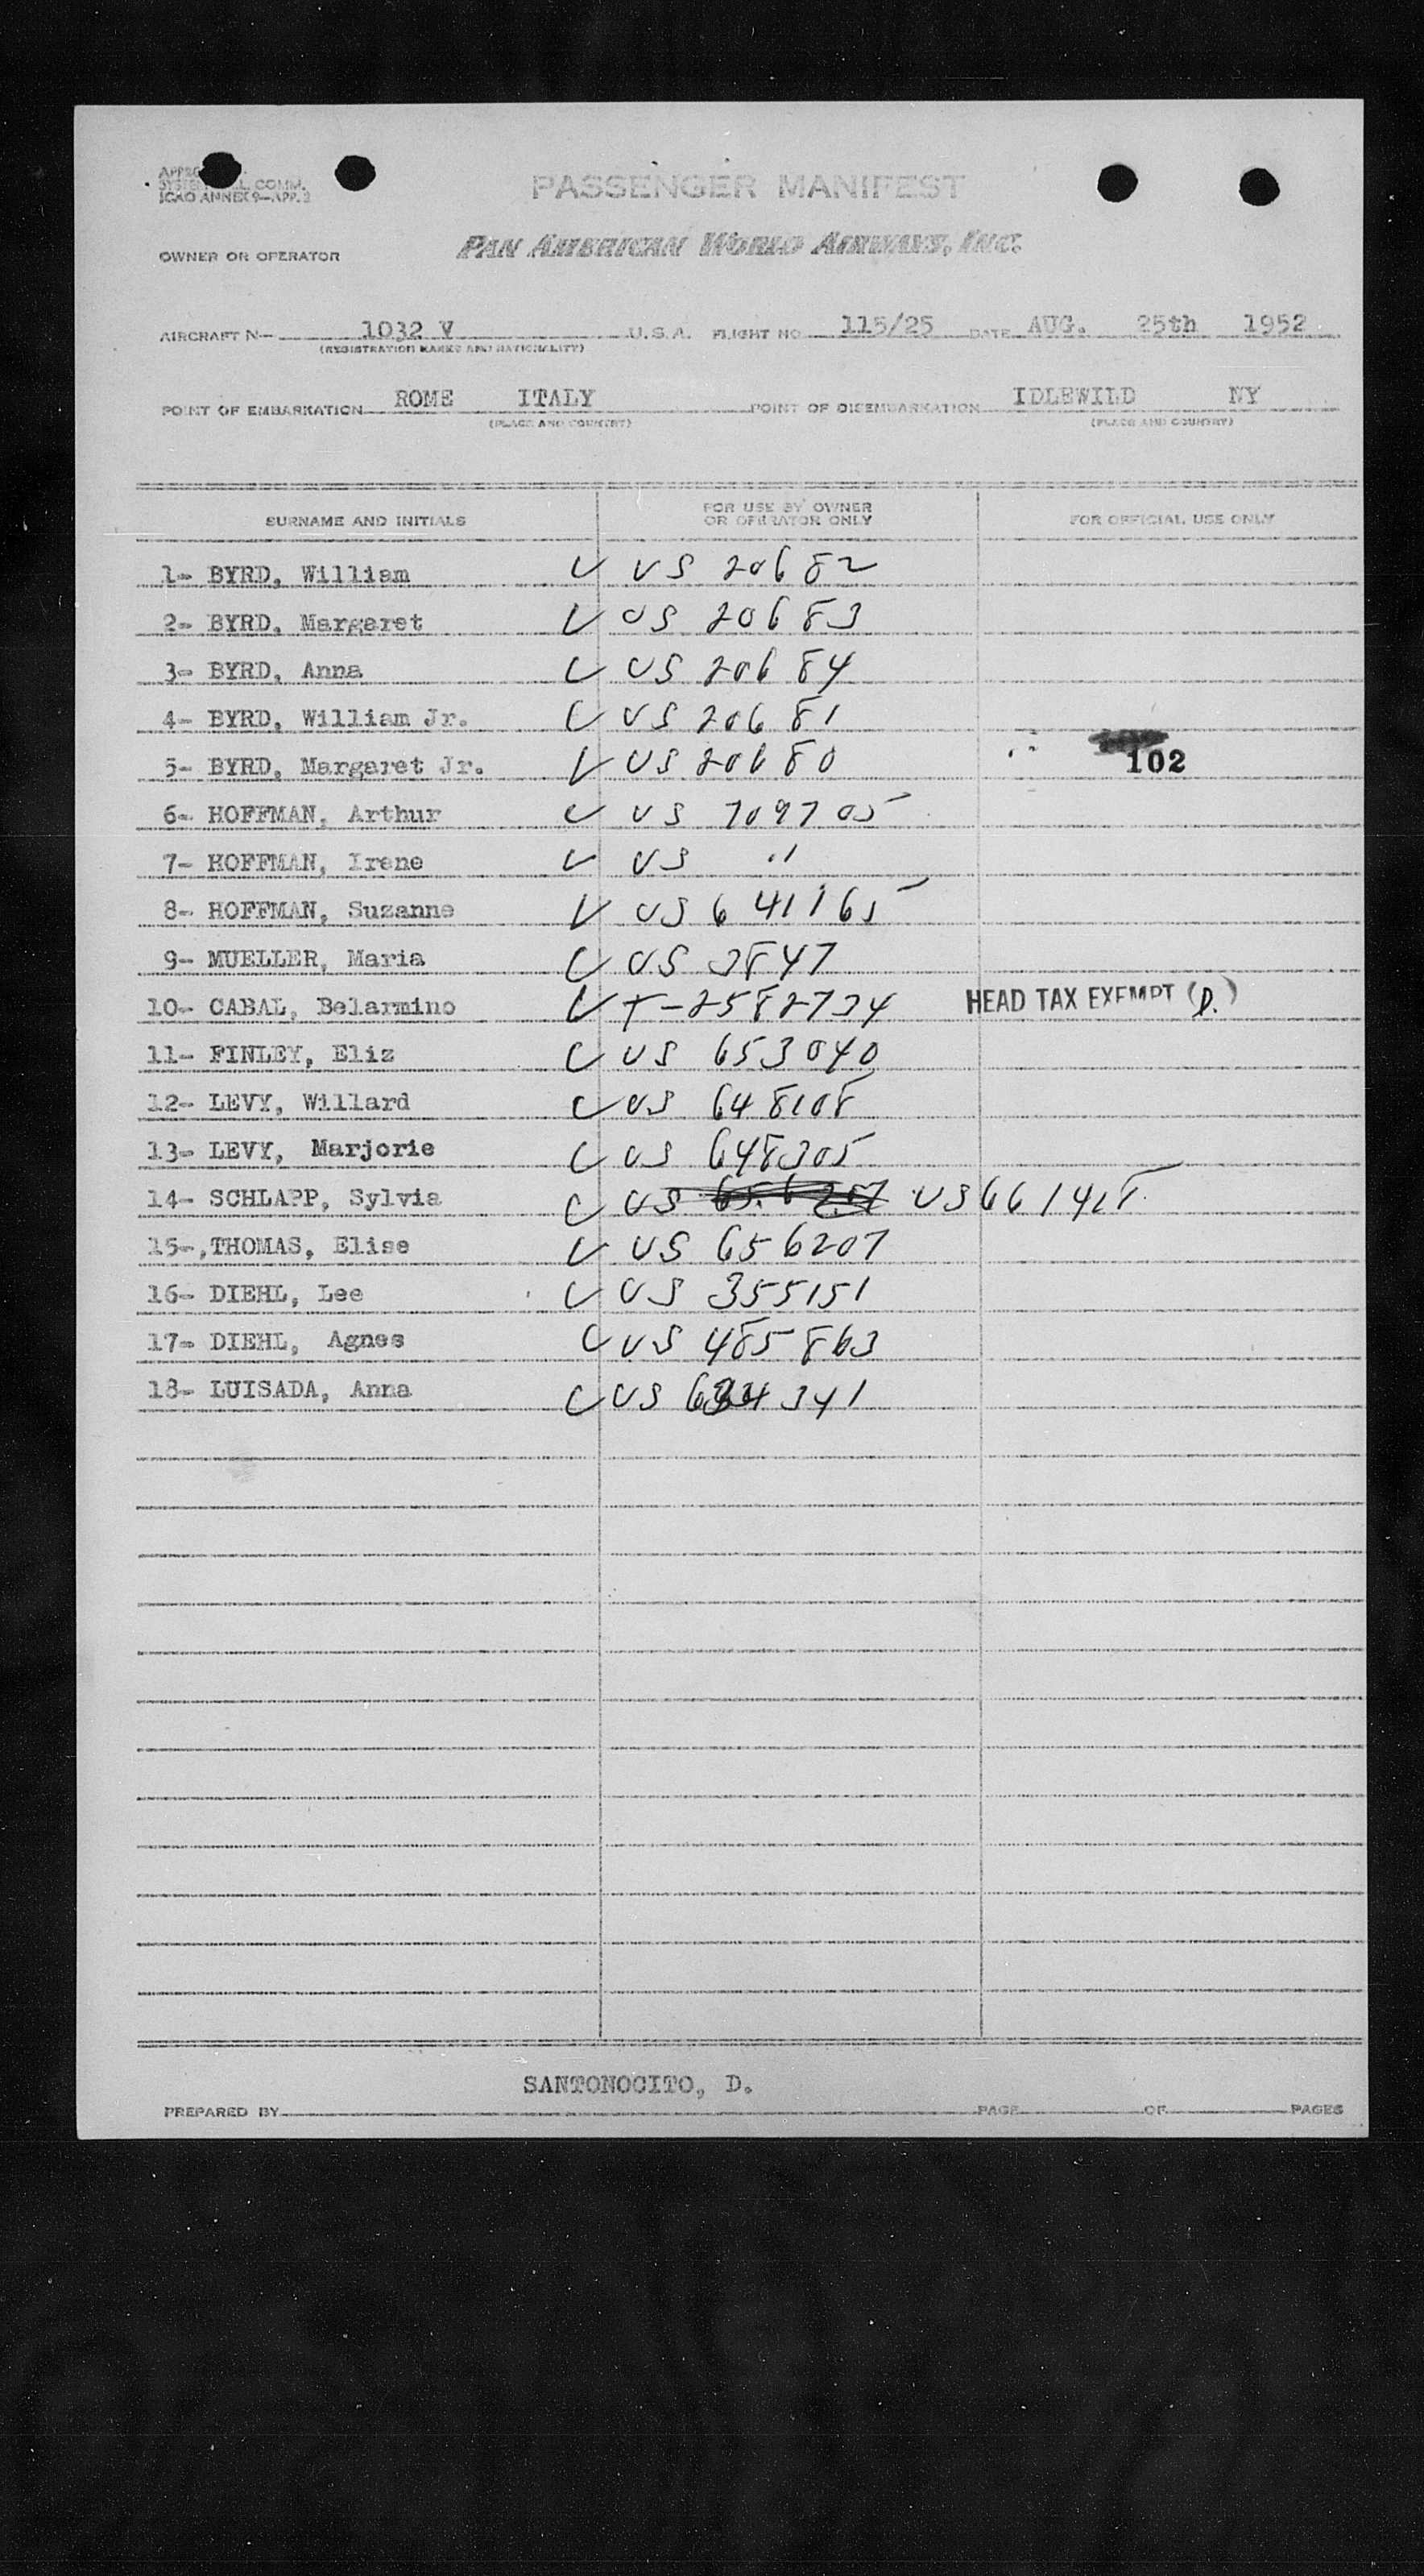 PASSENGER MANIFEST
COMM.
ICAO ANNEX 9—APP. 3
OWNER OR OPERATOR PAN AMERICAN WORLD AIRWAYS, INC.
AIRCRAFT N— 1032 V U.S.A. FLIGHT NO 115/25 DATE AUG. 25th 1952
(REGISTRATION MARKS AND NATIONALITY)
POINT OF EMBARKATION ROME ITALY POINT OF DISEMBARKATION IDLEWILD NY
(PLACE AND COUNTRY) (PLACE AND COUNTRY)
SURNAME AND INITIALS FOR USE BY OWNER OR OPERATOR ONLY FOR OFFICIAL USE ONLY
1- BYRD, William US 20682
2- BYRD, Margaret US 20683
3- BYRD, Anna US 20684
4- BYRD, William Jr. US 20681
5- BYRD, Margaret Jr. US 20680 102
6- HOFFMAN, Arthur US 709705
7- HOFFMAN, Irene US "
8- HOFFMAN, Suzanne US 641165
9- MUELLER, Maria US 3847
10- CABAL, Belarmino T-2582734 HEAD TAX EXEMPT (D.)
11- FINLEY, Eliz US 653040
12- LEVY, Willard US 648108
13- LEVY, Marjorie US 648305
14- SCHLAPP, Sylvia US 656207 US
15-, THOMAS, Elise US 656207
16- DIEHL, Lee US 355151
17- DIEHL, Agnes US 485863
18- LUISADA, Anna US
SANTONOCITO, D.
PREPARED BY PAGE OF PAGES